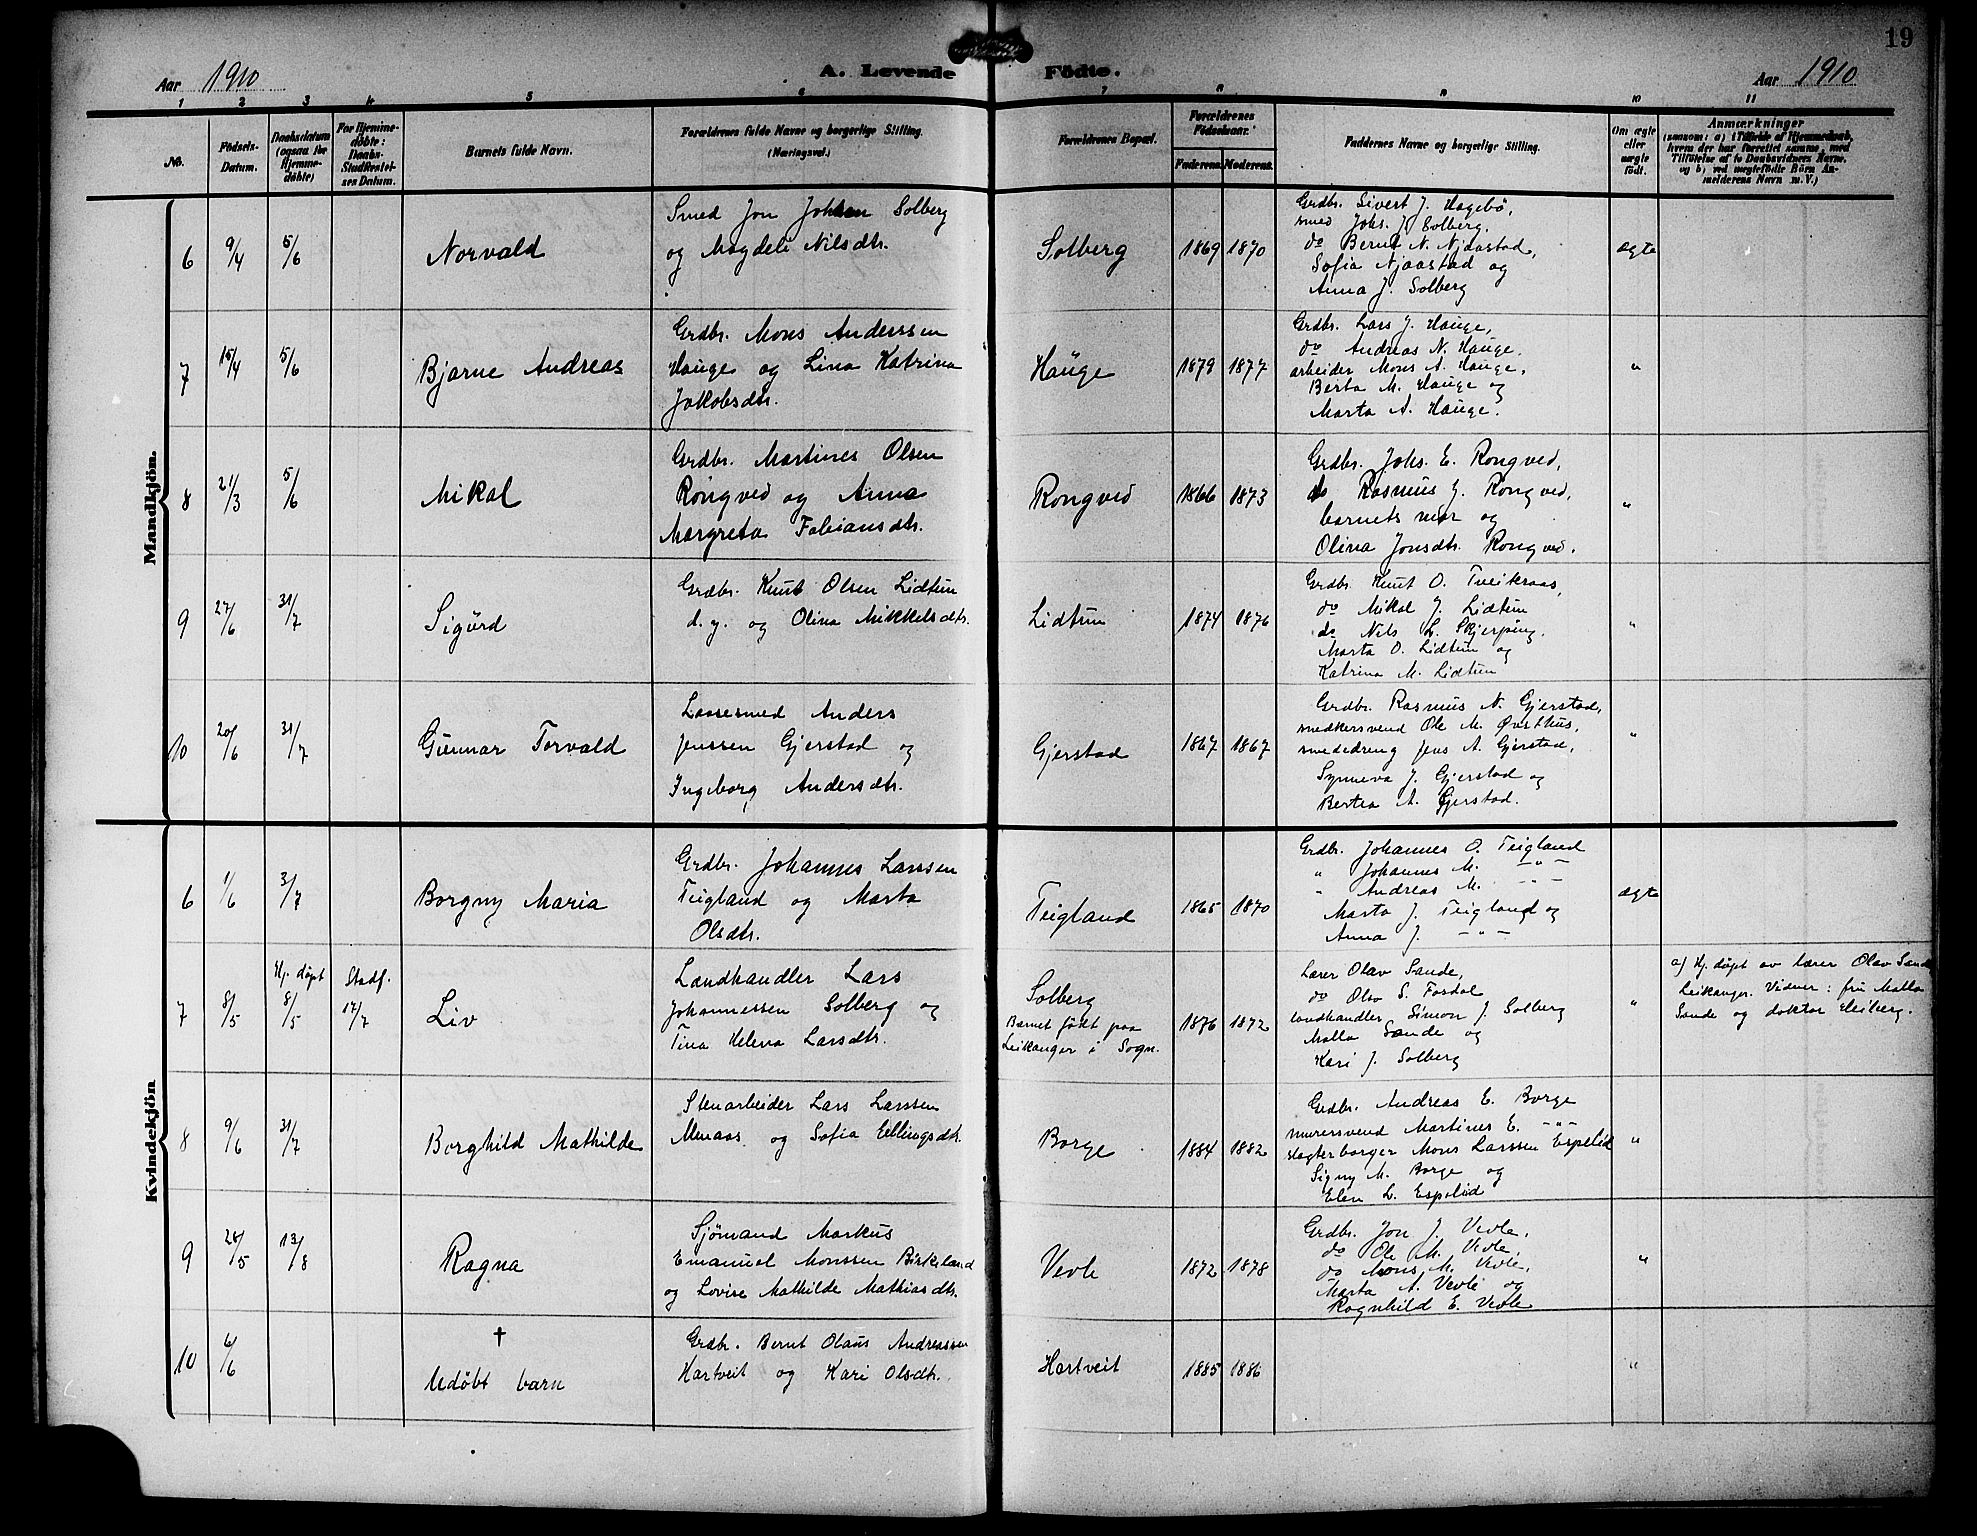 19
Aar 1910
A. Levende Födte.
Aar 1910
1 2 3 4 5 6 7 8 9 10 11
No.
Födsels-
Datum.
Daabsdatum
(ogsaa for
Hjemme-
döbte)
For Hjemme-
döbte:
Daabs-
Stadfæstel-
ses Datum.
Barnets fulde Navn.
Forældrenes fulde Navne og borgerlige Stilling.
(Næringsvei.)
Forældrenes Bopæl.
Forældrenes
Födselsaar.
Faderens. Moderens.
Faddernes Navne og borgerlige Stilling.
Om ægte
eller
uægte
födt.
Anmærkninger
(saasom: a) i Tilfælde af Hjemmedaab,
hvem der har forrettet samme, med
Tilföielse af to Daabsvidners Navne,
og b) ved uægtefödte Börn An-
melderens Navn m. V.)
Mandkjön.
6 9/4 5/6 Norvald
Smed Jon Johsen Solberg
og Magdeli Nilsdtr.
Solberg 1869 1870
Grdbr. Sivert J. Hagebö,
smed Johs. J. Solberg,
do Bernt N. Njaastad,
Sofia Njaastad og
Anna J. Solberg
ægte
7 15/4 5/6 Bjarne Andreas
Grdbr. Mons Anderssen
Hauge og Lina Katrina
Jakobsdtr.
Hauge 1879 1877
Grdbr. Lars J. Hauge,
do Andreas N. Hauge,
arbeider Mons A. Hauge,
Berta M. Hauge og
Marta A. Hauge.
"
8 21/3 5/6 Mikal
Grdbr. Martines Olsen
Rongved og Anna
Margreta Fabiansdtr.
Rongved 1866 1873
Grdbr. Johs. E. Rongved,
do Rasmus J. Rongved,
barnets mor og
Olina Jonsdtr. Rongved.
"
9 27/6 31/7 Sigurd
Grdbr. Knut Olsen Lidtun
d. y. og Olina Mikkelsdtr.
Lidtun 1874 1876
Grdbr. Knut O. Tveikraas,
do Mikal J. Lidtun
do Nils L. Skjerping,
Marta O. Lidtun og
Katrina M. Lidtun
"
10 20/6 31/7 Gunnar Torvald
Laasesmed Anders
Jenssen Gjerstad og
Ingeborg Andersdtr.
Gjerstad 1867 1867
Grdbr. Rasmus N. Gjerstad,
snedkersvend Ole M. Øvsthus,
smededreng Jens A. Gjerstad,
Synneva J. Gjerstad og
Bertea A. Gjerstad.
"
Kvindekjön
6 1/6 3/7 Borgny Maria
Grdbr. Johannes Larssen
Teigland og Marta
Olsdtr.
Teigland 1865 1870
Grdbr. Johannes O. Teigland
" Johannes M. - " -
" Andreas M. - " -
Marta J. Teigland og
Anna J. - " -
ægte
7 8/5 Hj. døpt 8/5 Stadf. 17/7 Liv
Landhandler Lars
Johannessen Solberg og
Tina Helena Larsdtr.
Solberg
Barnet født paa
Leikanger i Sogn.
1876 1872
Lærer Olav Sande,
do Olav S. Fosdal
landhandler Simon J. Solberg
Malla Sande og
Kari J. Solberg
"
a) Hj. døpt av lærer Olav Sande
Leikanger. Vidner: fru Malla
Sande og doktor Heiberg.
8 9/6 31/7 Borghild Mathilde
Stenarbeider Lars Larssen
Menaas og Sofia Ellingsdtr.
Borge 1884 1882
Grdbr. Andreas E. Borge
murersvend Martines E. - " -
slagterborger Mons Larssen Espelid
Signy M. Borge og
Elen L. Espelid
"
9 26/5 13/8 Ragna
Sjömand Markus
Emanuel Monssen Birkeland
og Lovise Mathilde Mathiasdtr.
Vevle 1872 1878
Grdbr. Jon J. Vevle,
do Ole M. Vevle,
do Mons M. Vevle,
Marta A. Vevle og
Ragnhild E. Vevle
"
10 6/6 †
Udöbt barn
Grdbr. Bernt Olaus Andreassen
Hartveit og Kari Olsdtr.
Hartveit 1885 1886
"